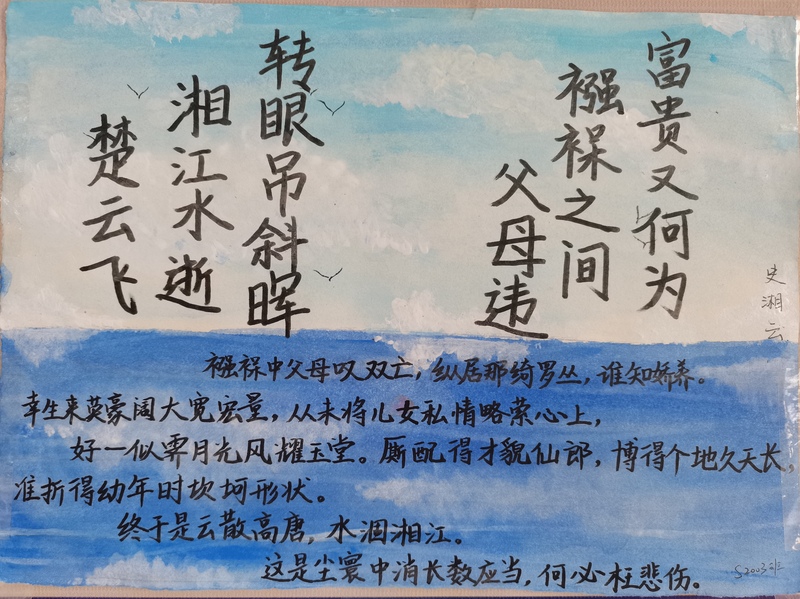 富贵又何为
襁褓之间
父母违
转眼吊斜晖
湘江水逝
楚云飞
史湘云
襁褓中父母叹双亡，纵居那绮罗丛，谁知娇养。
幸生来英豪阔大宽宏量，从未将儿女私情略萦心上，
好一似霁月光风耀玉堂。厮配得才貌仙郎，博得个地久天长，
准折得幼年时坎坷形状。
终于是云散高唐，水涸湘江。
这是尘寰中消长数应当，何必枉悲伤。
S2003班